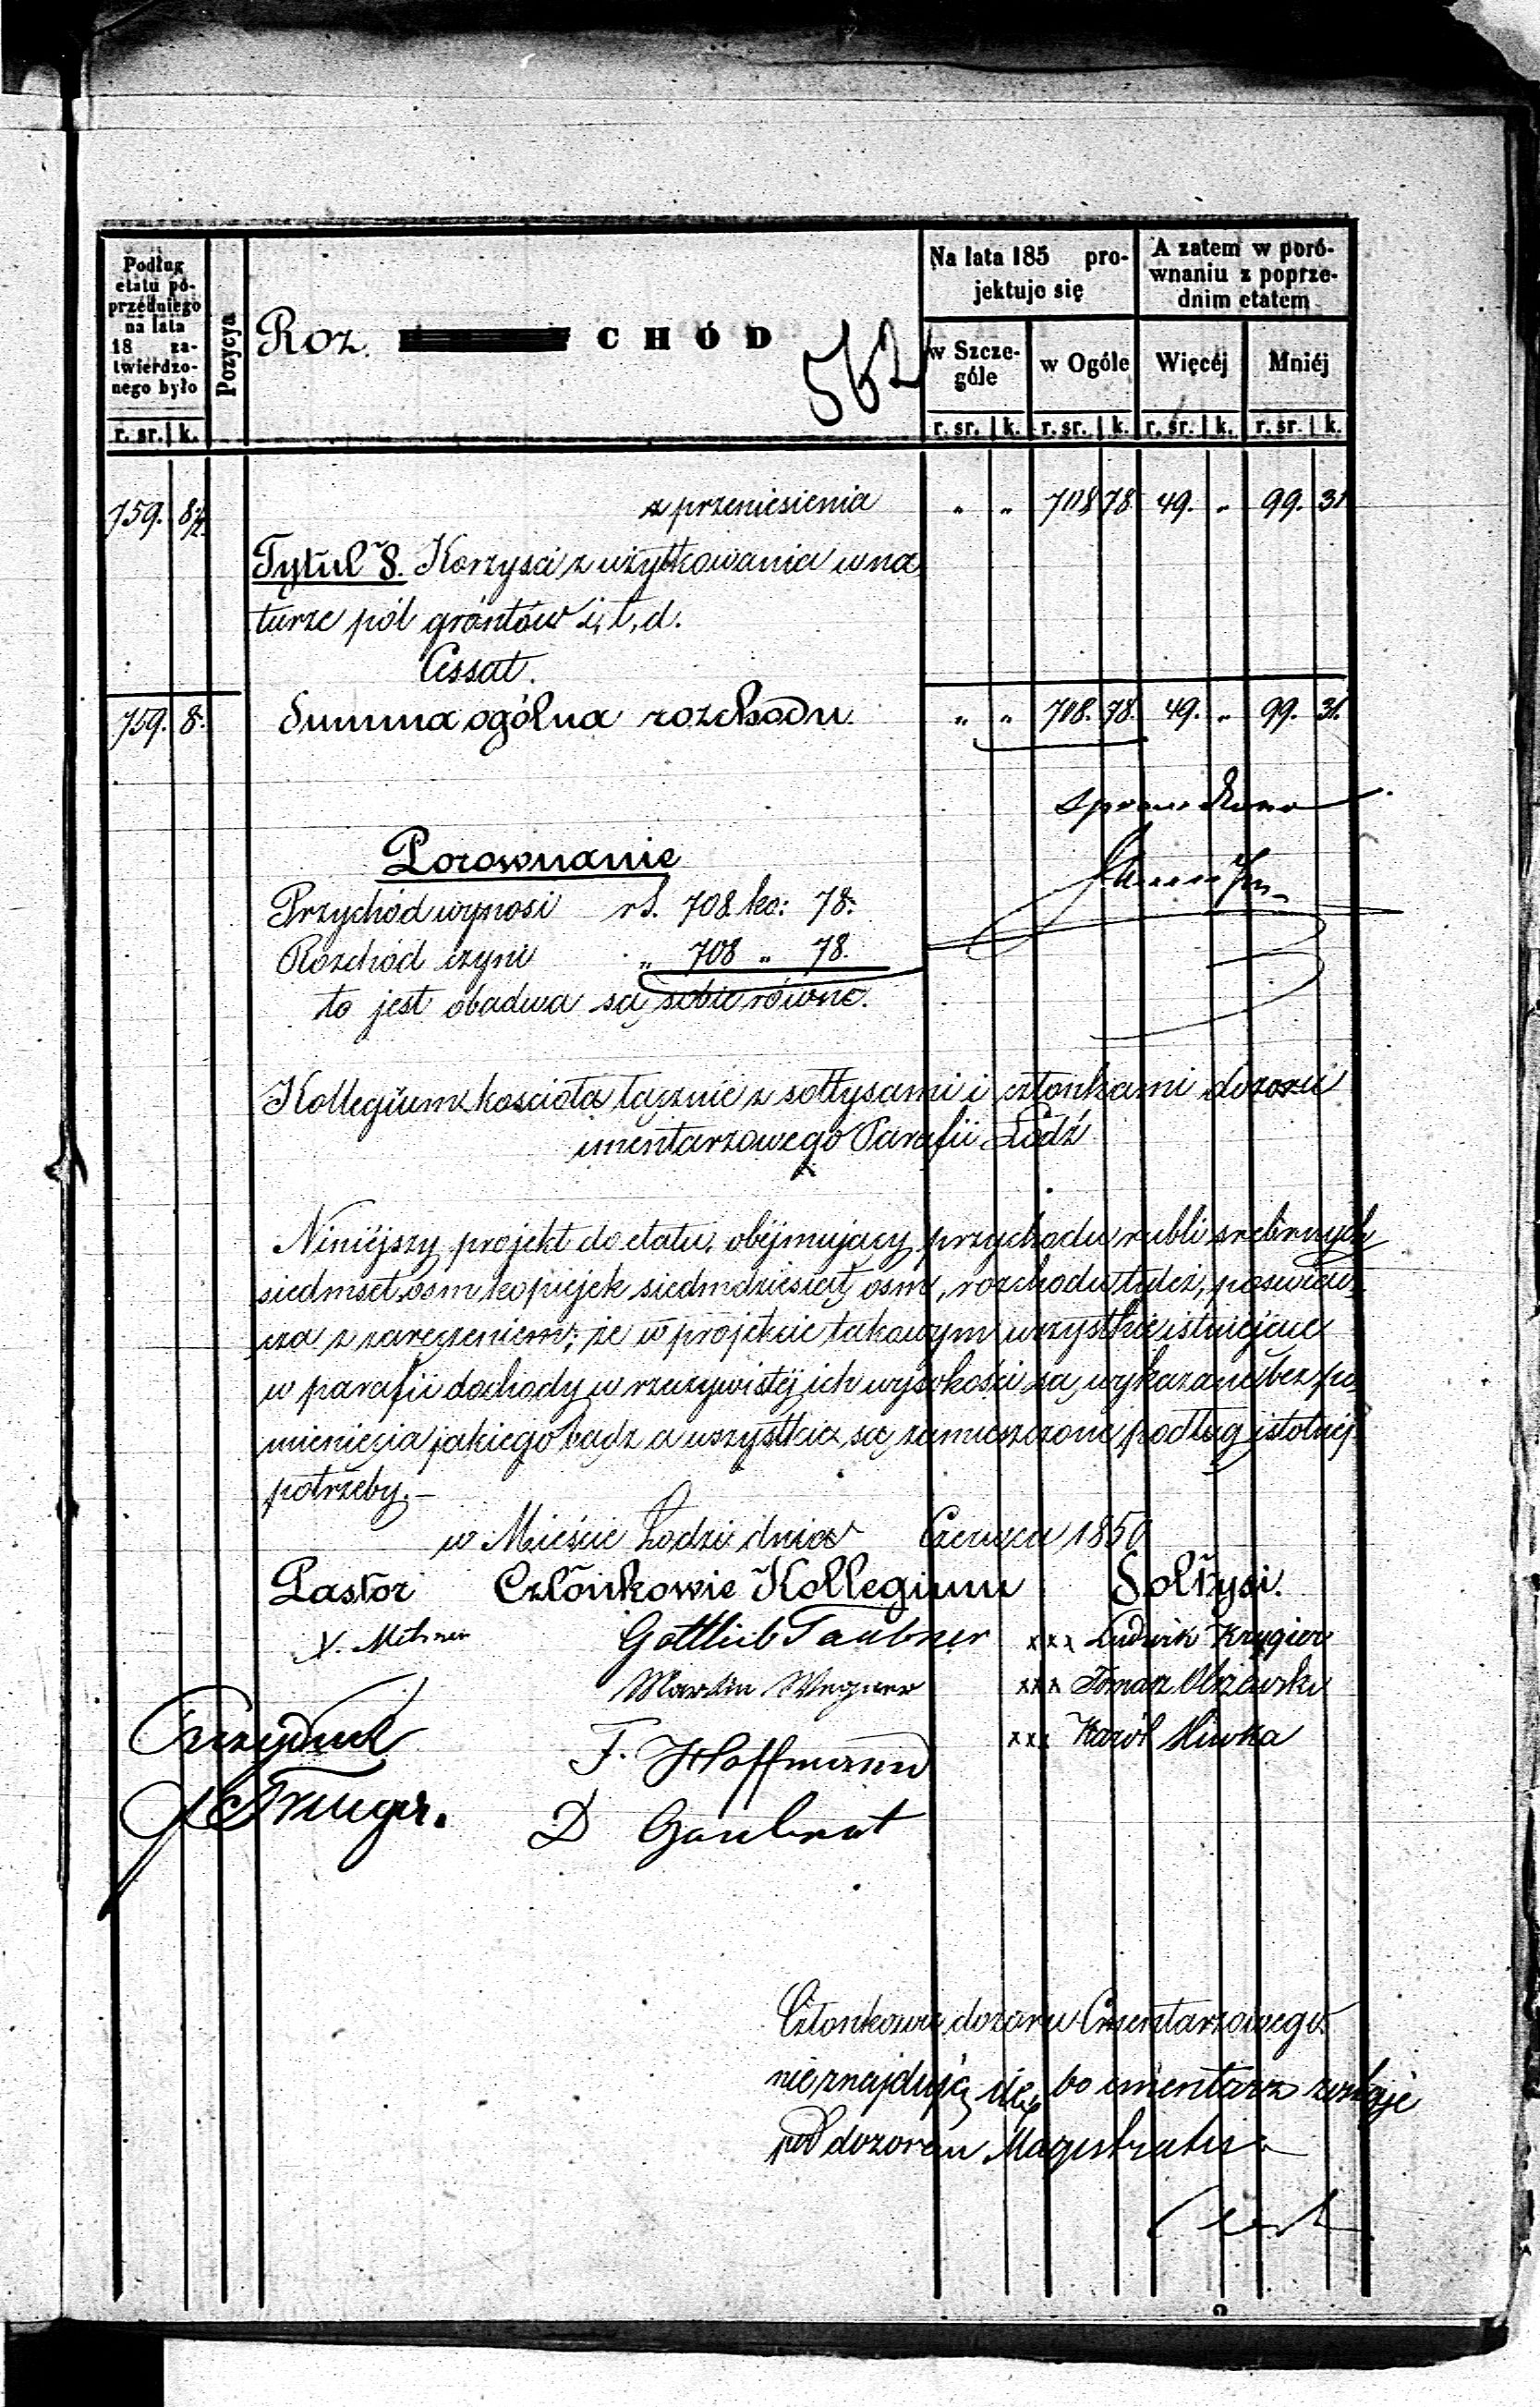 Podług
etatu po-
przedniego
na lata
18 za-
twierdzo-
nego było
r. sr. k.
Pozycya
Roz. CHÓD
562
Na lata 185 pro-
jektuje się
w Szcze-
góle
w Ogóle
r. sr. k. r. sr. k.
A zatem w poró-
wnaniu z poprze-
dnim etatem
Więcéj Mniéj
r. sr. k. r. sr. k.
759. 8½ z przeniesienia " " 708 78 49. " 99. 31
Tytuł 8. Korzyści z użytkowania w na
turze pól grontów i, t, d.
Cessat.
759. 8. Summa ogólna rozchodu " " 708. 78. 49. " 99. 31.
Porownanie
Przychód wynosi rs. 708 ko: 78:
Rozchód czyni " 708 " 78.
to jest obadwa są sobie równe.
Kollegium kościoła łącznie z sołtysami i członkami dozoru
cmentarzowego Parafii Łódź
Niniejszy projekt do etatu, obéjmujący przychodu rubli srebrnych
siedmset ośm kopiejek siedmdziesiąt ośm, rozchodu tyleż, poświad
cza z zaręczeniem, że w projekcie takowym wszystkie istniejące
w parafii dochody w rzeczywistéj ich wysokości są wykazane bez po
minięcia jakiego bądź a wszystkie są zamieszczone podług istotnéj
potrzeby.-
w Mieście Łodzi dnia Czerwca 1850
Pastor Członkowie Kollegium Sołtysi.
Gottlieb Taubner xxx Ludwik Krygier
Martin Wegner xxx Tomasz Olszewski
F. Hoffmann xxx Karól Sliwka
Prezydent
Traeger.
D
Członkowie dozoru Cmentarzowego
nie znajdują się, bo cmentarz zostaje
pod dozorem Magistratu